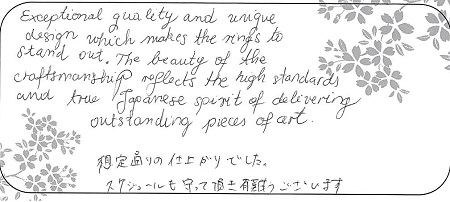 Exceptional quality and unique
design which makes the rings to
stand out. The beauty of the
craftsmanship reflects the high standards
and true Japanese spirit of delivering
outstanding pieces of art.
想定通りの仕上がりでした。
スケジュールも守って頂き有難うございます